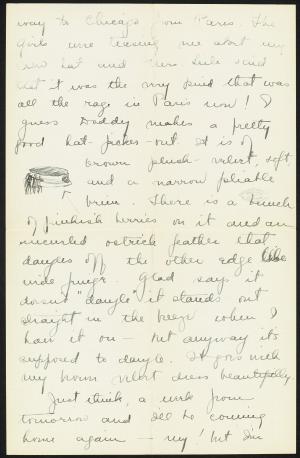 way to Chicago from Paris. The
girls were teasing me abort my
new hat and Mrs. said
that it was the very kind that was
all the rage in Paris now! I
guess Daddy makes a pretty
good hat-picker-out. It is of
brown plush-velvet, soft
and a narrow pliable
brim. There is a bunch
of pinkish berries on it and an
uncurled ostrich feather that
dangles off the other edge like
wide fringe. Glad says it
doesn't "dangle" it stands out
straight in the breeze when I
have it on — but anyway it's
supposed to dangle. It goes with
my brown velvet dress beautifully.
Just think, a week from
tomorrow and I'll be coming
home again — my! but I'm